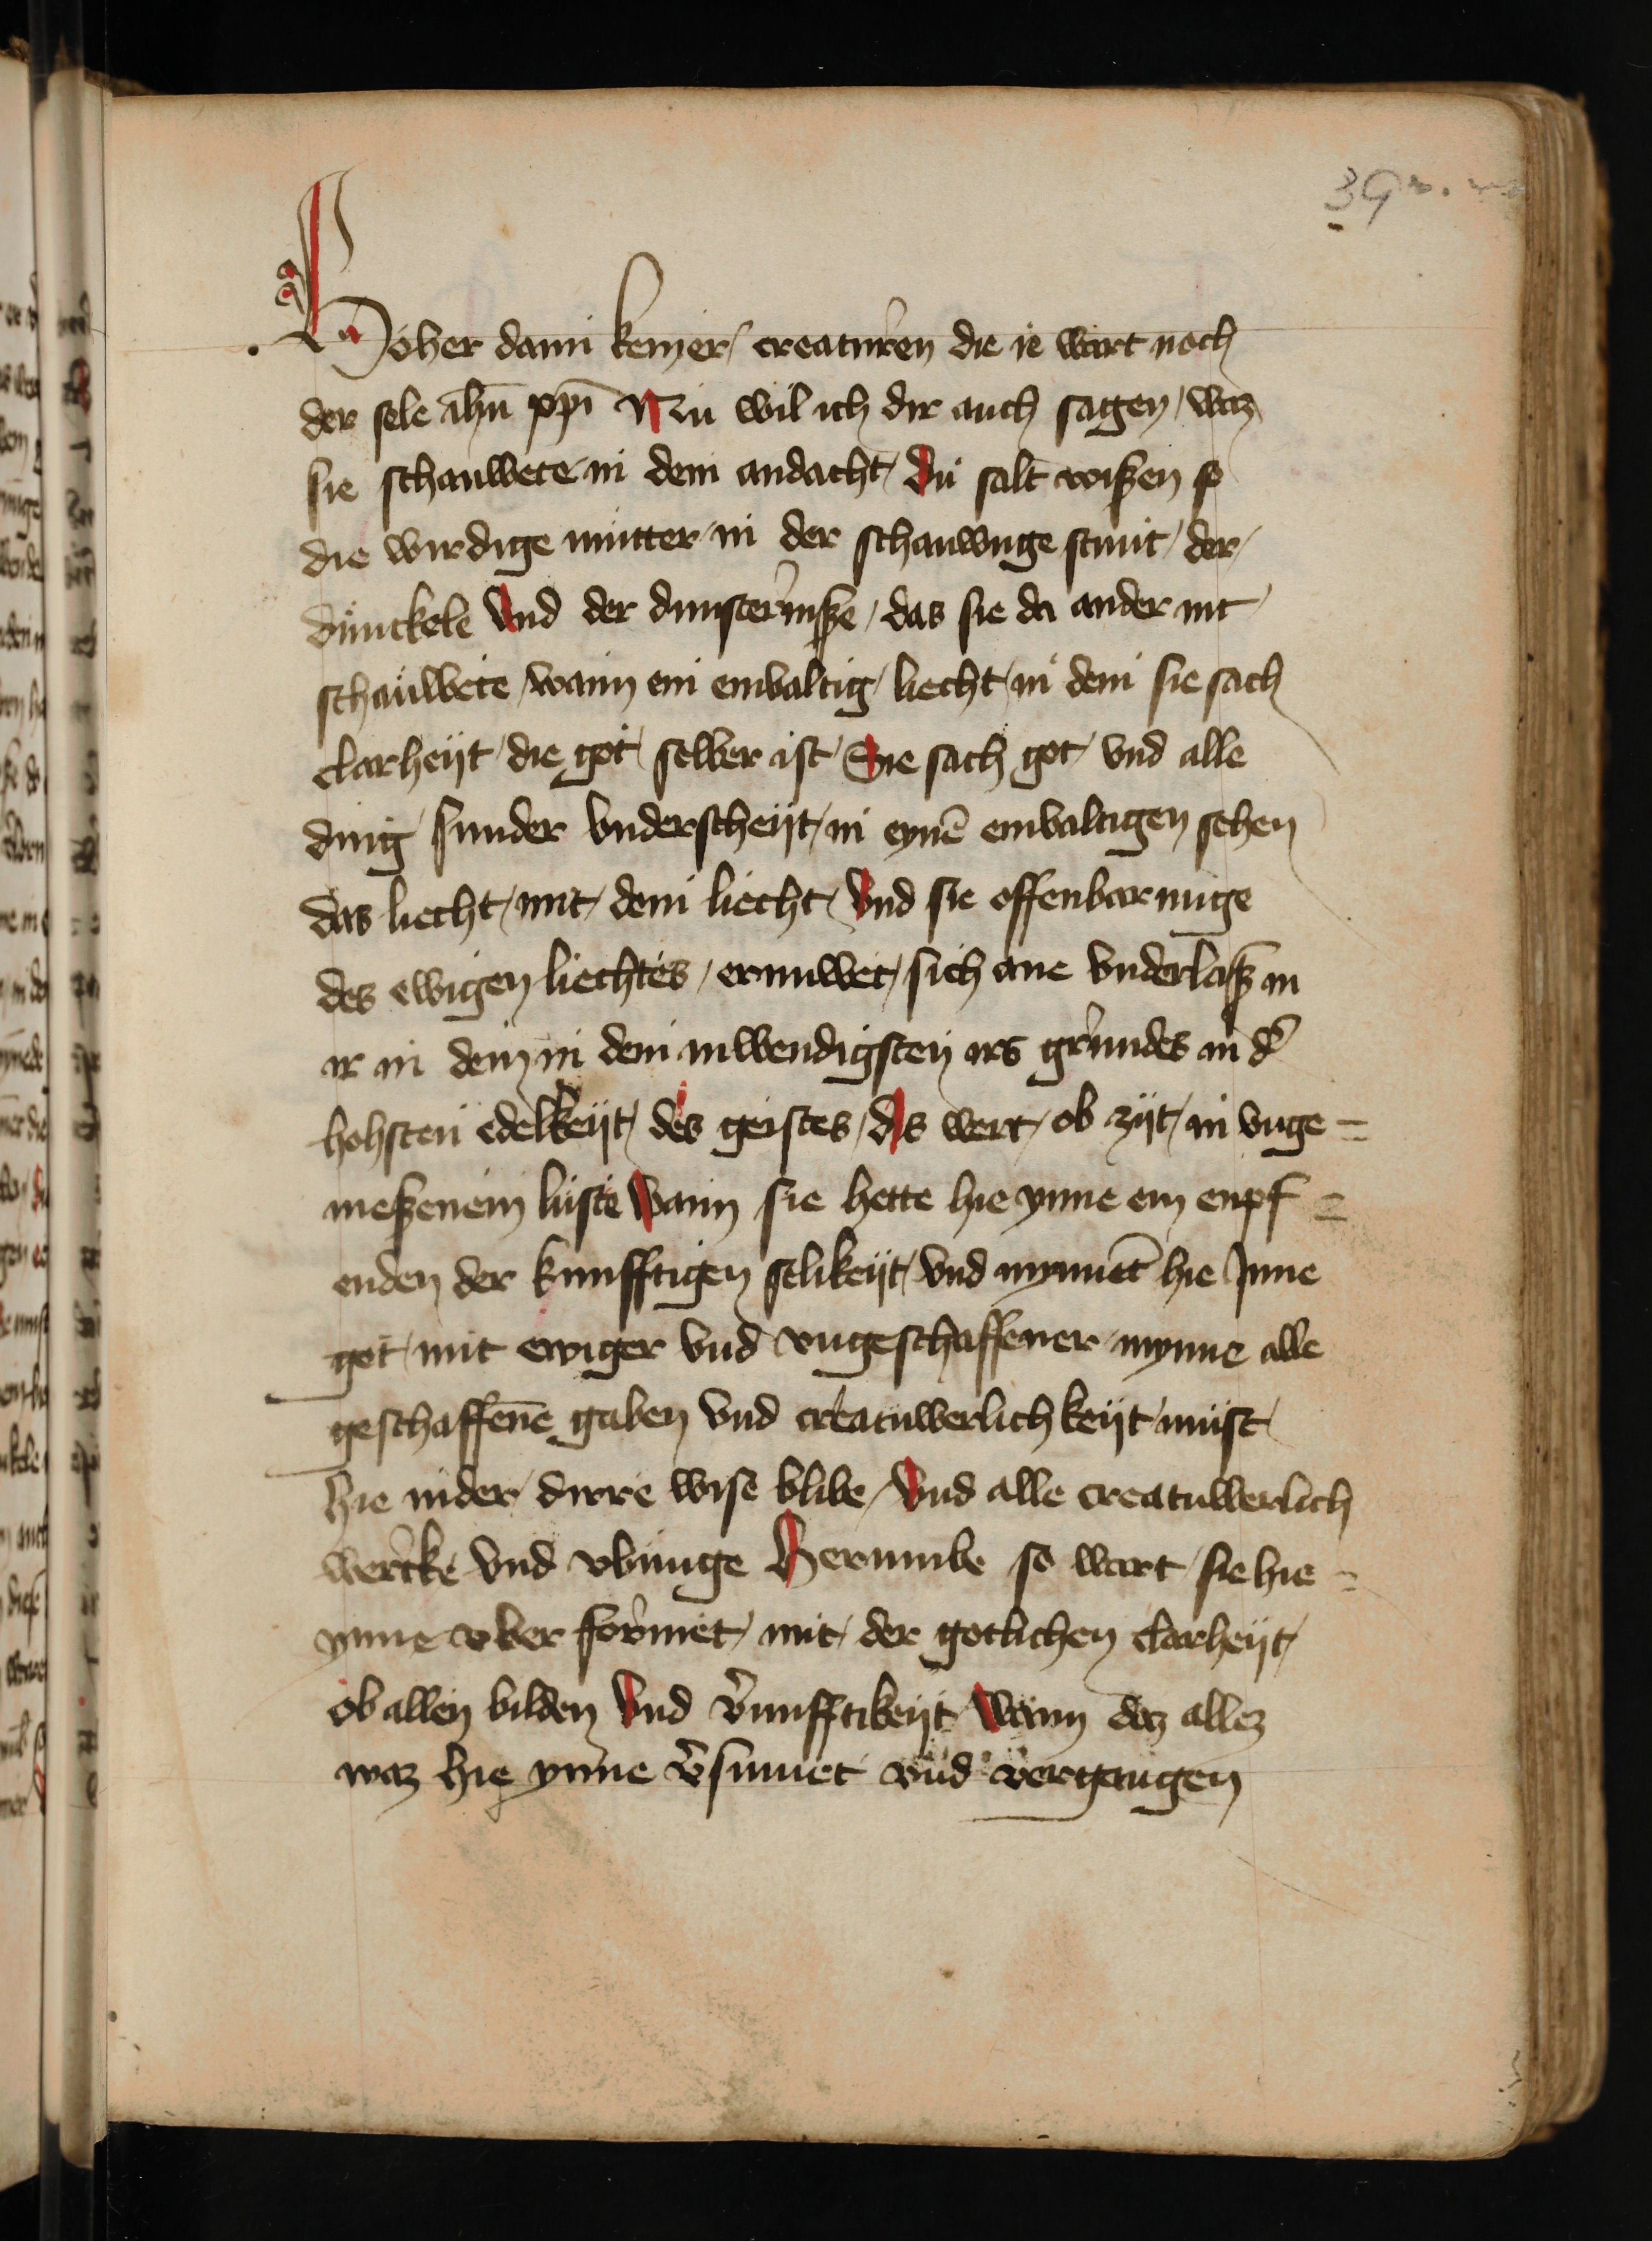 39r.
Höher dann keiner creaturen die ie wart noch
der sele ahn xpi Nu wil ich dir auch sagen waz
sie schauwete in dem andacht Du salt wißen so
die wirdige mutter in der schauwnge stunt der
dunckele vnd der dunsterniße das sie da ander nit
schauwete wann ein einvaltig liecht in dem sie sach
clarheijt die got selber ist Sie sach got vnd alle
ding sunder vnderscheijt in eynē einvaltigen sehen
das liecht mit dem liecht Vnd sie offenbarunge
des ewigen liechtes ernuwet sich ane vnderlaß in
ir in dem in dem inwendigsten irs grundes in dˀ
hohsten edelkeijt des geistes das wert ob zijt in vnge =
meßenem luste Wann sie hette hie ynne ein enpf =
enden der kunfftigen selikeijt vnd mynnet hie Jnne
got mit ewiger vnd vngeschaffener mynne alle
geschaffene gaben vnd creatuwerlichkeijt must
hie nider dirre wise blibe Vnd alle creatuwerlich
wercke vnd vbunge Herumbe so wart sie hie =
ynne vber formet mit der gotlichen clarheijt
ob allen bilden Vnd vˀnunfftikeijt Wann daz allez
waz hie ynne vˀsumet vnd vergangen